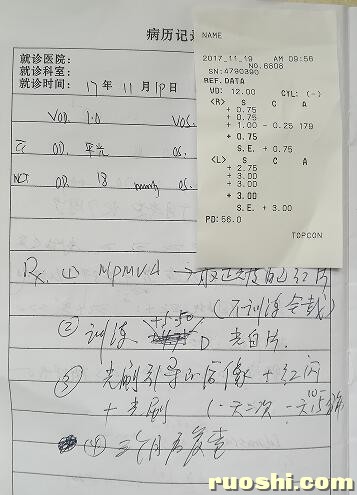 病历记录
NAME
就诊医院:
就诊科室:
就诊时间: 17年 11月 19日
2017_11_19 AM 09:56
NO.6808
SN:4790390
REF.DATA
VD: 12.00 CYL: (-)
<R> S C A
+ 0.75
+ 0.75
+ 1.00 - 0.25 179
+ 0.75
S.E. + 0.75
<L> S C A
+ 2.75
+ 3.00
+ 3.00
+ 3.00
S.E. + 3.00
PD: 56.0
TOPCON
VOD 1.0 VOS
OD. 平光 OS.
NCT OD. 18 mmHg OS.
Rx. ① MPMVA → 红片
(不训练会戴)
② 训练 +5.50 D 老白片.
③ 光刷引导小后像 + 红闪
+ 光刷 (一天二次 一次10分钟
④ 三个月后复查
ruoshi.com